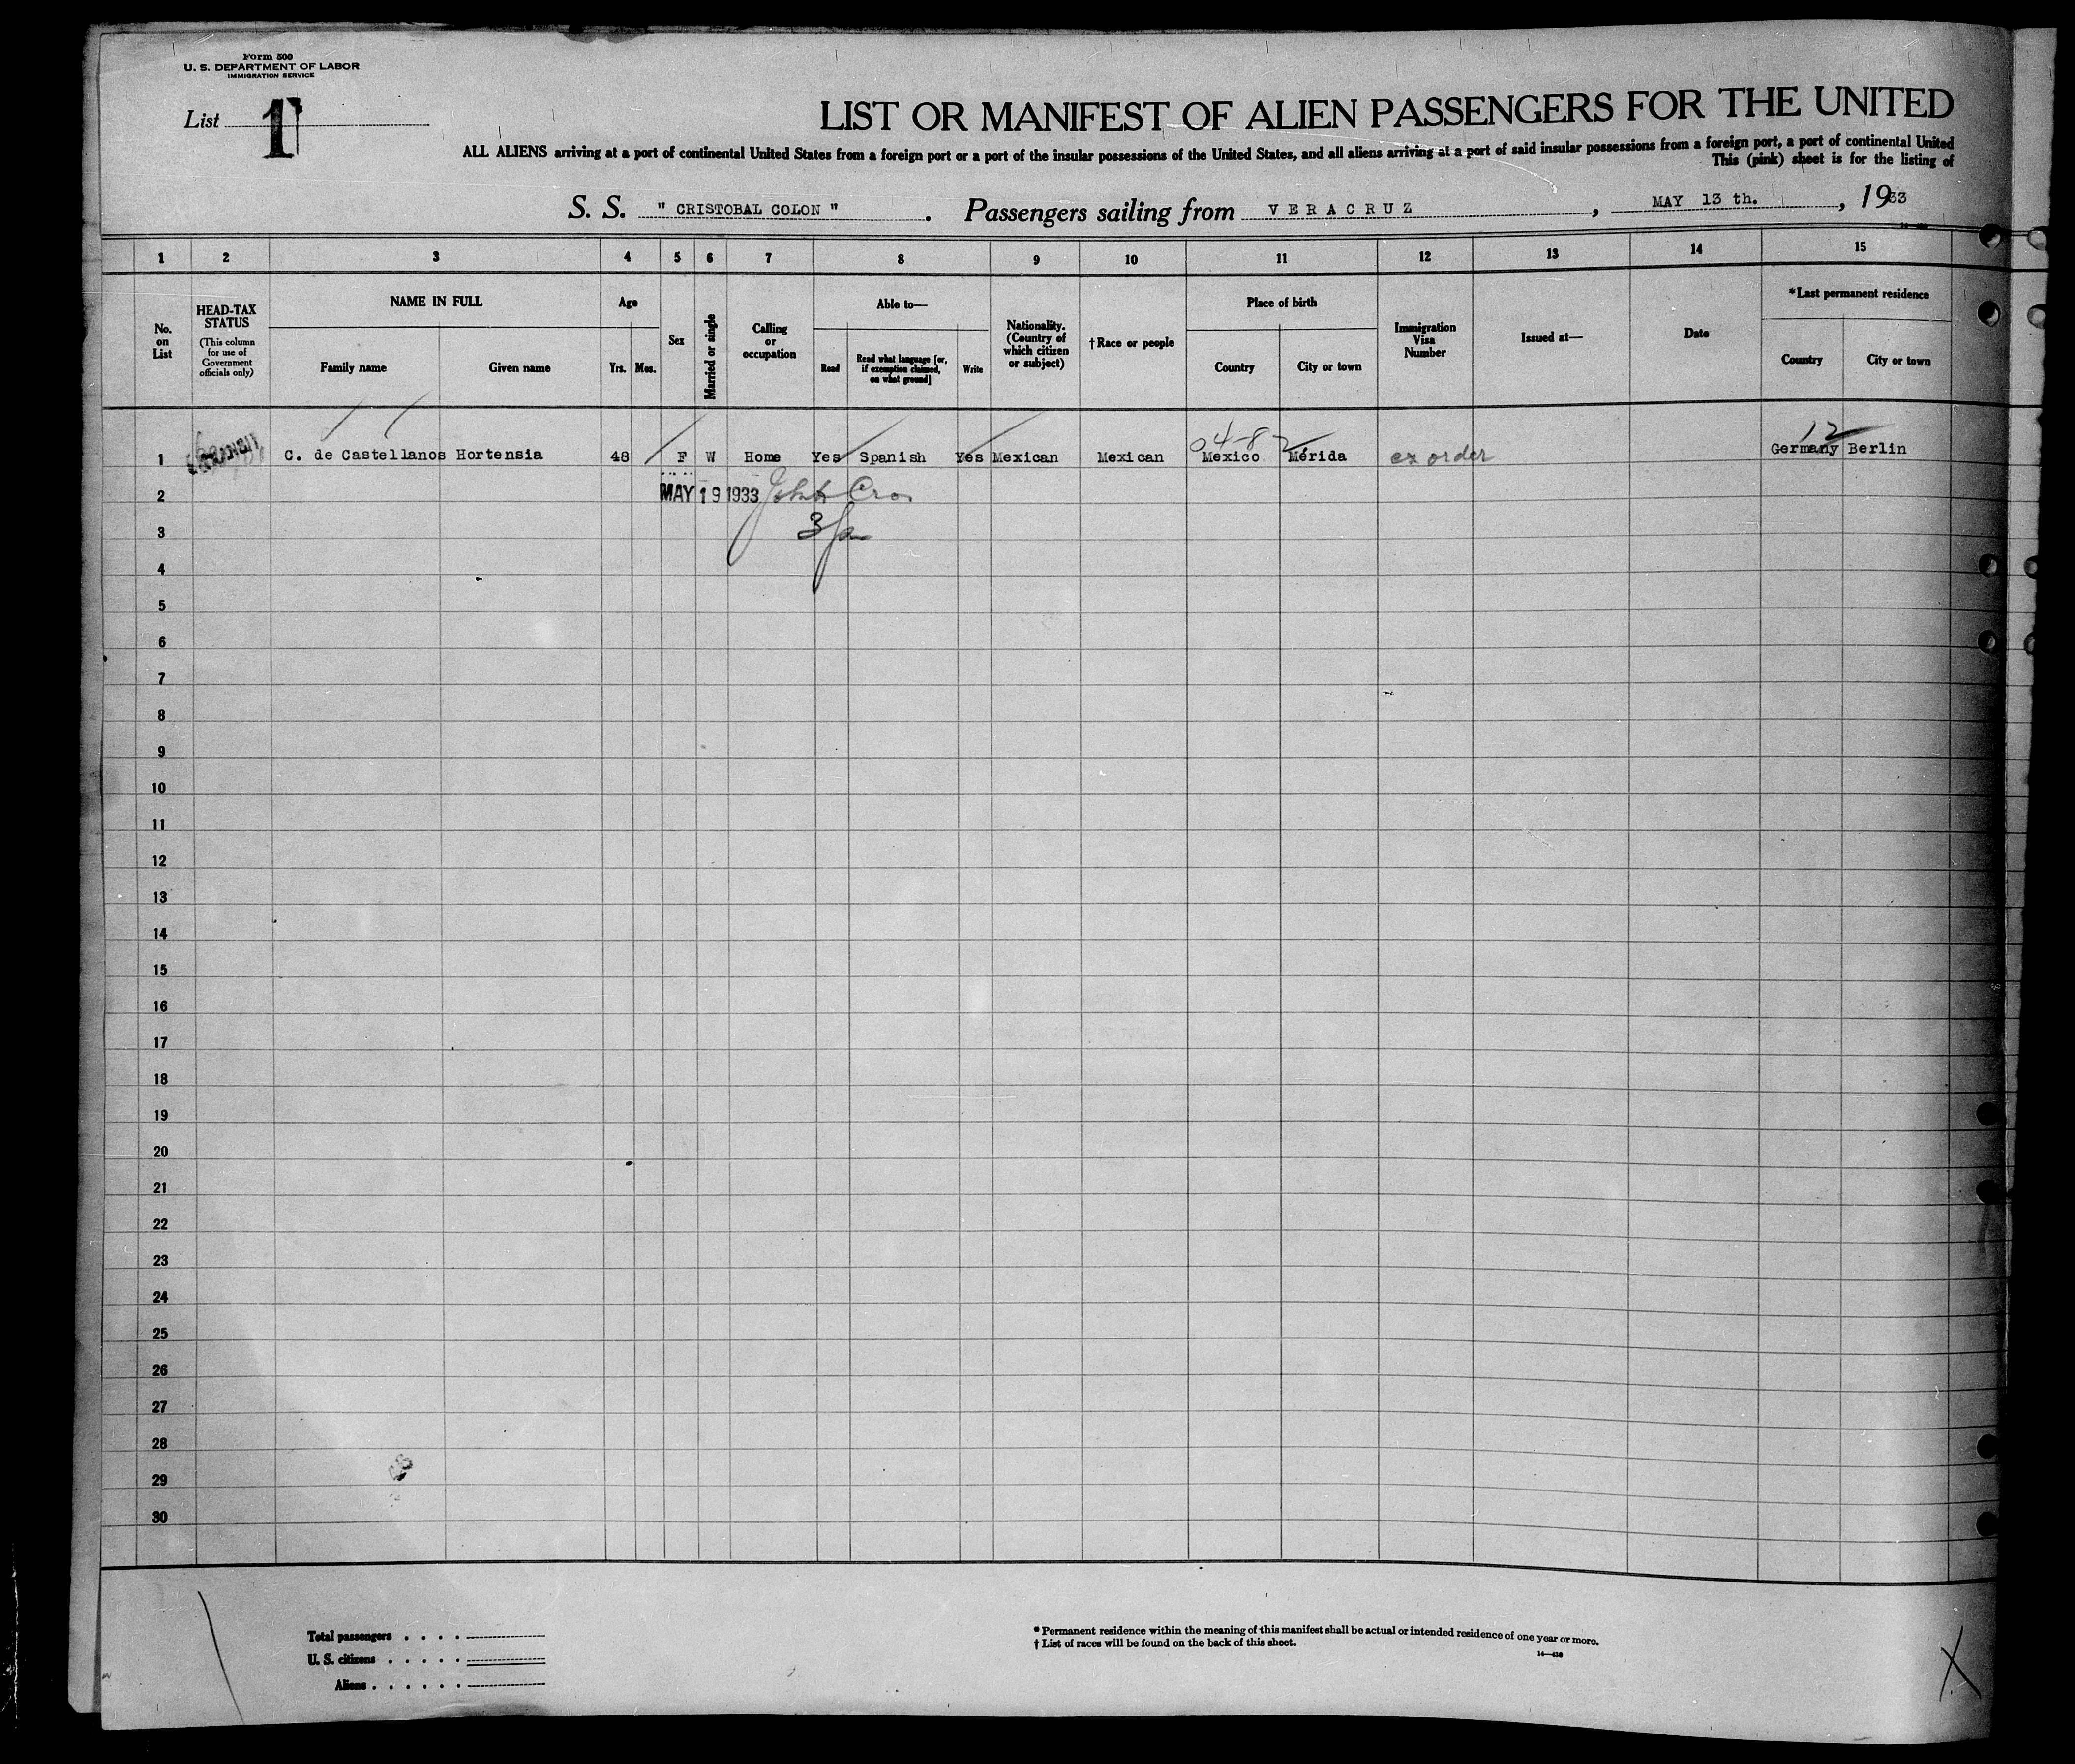 Form 500
U. S. DEPARTMENT OF LABOR
IMMIGRATION SERVICE
List 1
LIST OR MANIFEST OF ALIEN PASSENGERS FOR THE UNITED
ALL ALIENS arriving at a port of continental United States from a foreign port or a port of the insular possessions of the United States, and all aliens arriving at a port of said insular possessions from a foreign port, a port of continental United
This (pink) sheet is for the listing of
S. S. " CRISTOBAL COLON " . Passengers sailing from VERACRUZ , MAY 13 th. , 1933
1 2 3 4 5 6 7 8 9 10 11 12 13 14 15
No. on List
HEAD-TAX STATUS
(This column for use of Government officials only)
NAME IN FULL
Family name Given name
Age
Yrs. Mos.
Sex
Married or single
Calling or occupation
Able to—
Read
Read what language [or, if exemption claimed, on what ground]
Write
Nationality. (Country of which citizen or subject)
†Race or people
Place of birth
Country City or town
Immigration Visa Number
Issued at—
Date
*Last permanent residence
Country City or town
04-8 2 12
1 C. de Castellanos Hortensia 48 F W Home Yes Spanish Yes Mexican Mexican Mexico Mérida ex order Germany Berlin
2 MAY 19 1933 John
3
4
5
6
7
8
9
10
11
12
13
14
15
16
17
18
19
20
21
22
23
24
25
26
27
28
29
30
Total passengers . . . .
U. S. citizens . . . . .
Aliens . . . . . .
* Permanent residence within the meaning of this manifest shall be actual or intended residence of one year or more.
† List of races will be found on the back of this sheet.